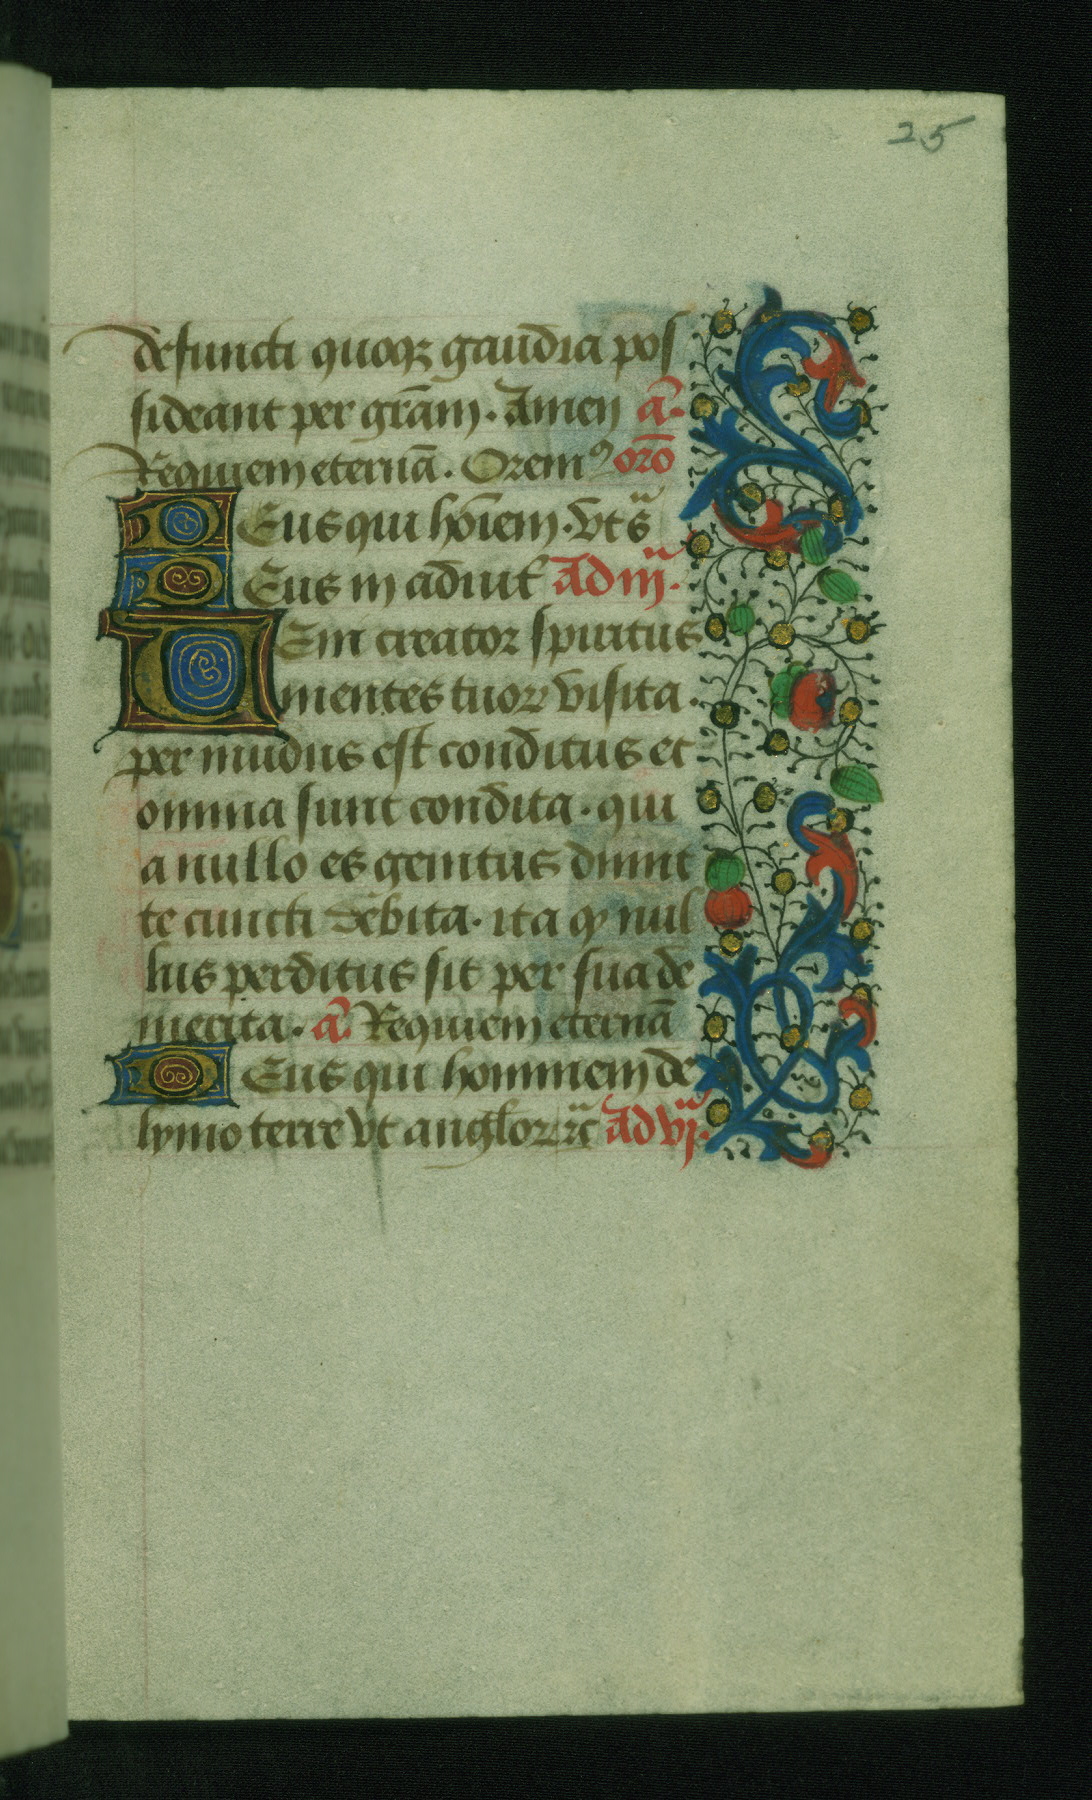 25
defuncti quoqꝫ gaudia pos
sideant per grām. Amen a̾.
Requiem eternā. Oremꝰ orō
Deus qui hoīem. vt s̾
Deus in adiut̄ Ad iij̾.
Veni creator spiritus
mentes tuoꝝ visita.
per mūdus est conditus et
omnia sunt condita. qui
a nullo es genitus dinit
te cuncti debita. ita qꝫ nul
lus perditus sit per sua de
merita. a̾. Requiem eternā
Deus qui hominem de
lymo terre vt angloꝝ ꝛc̾ Ad vj̾.